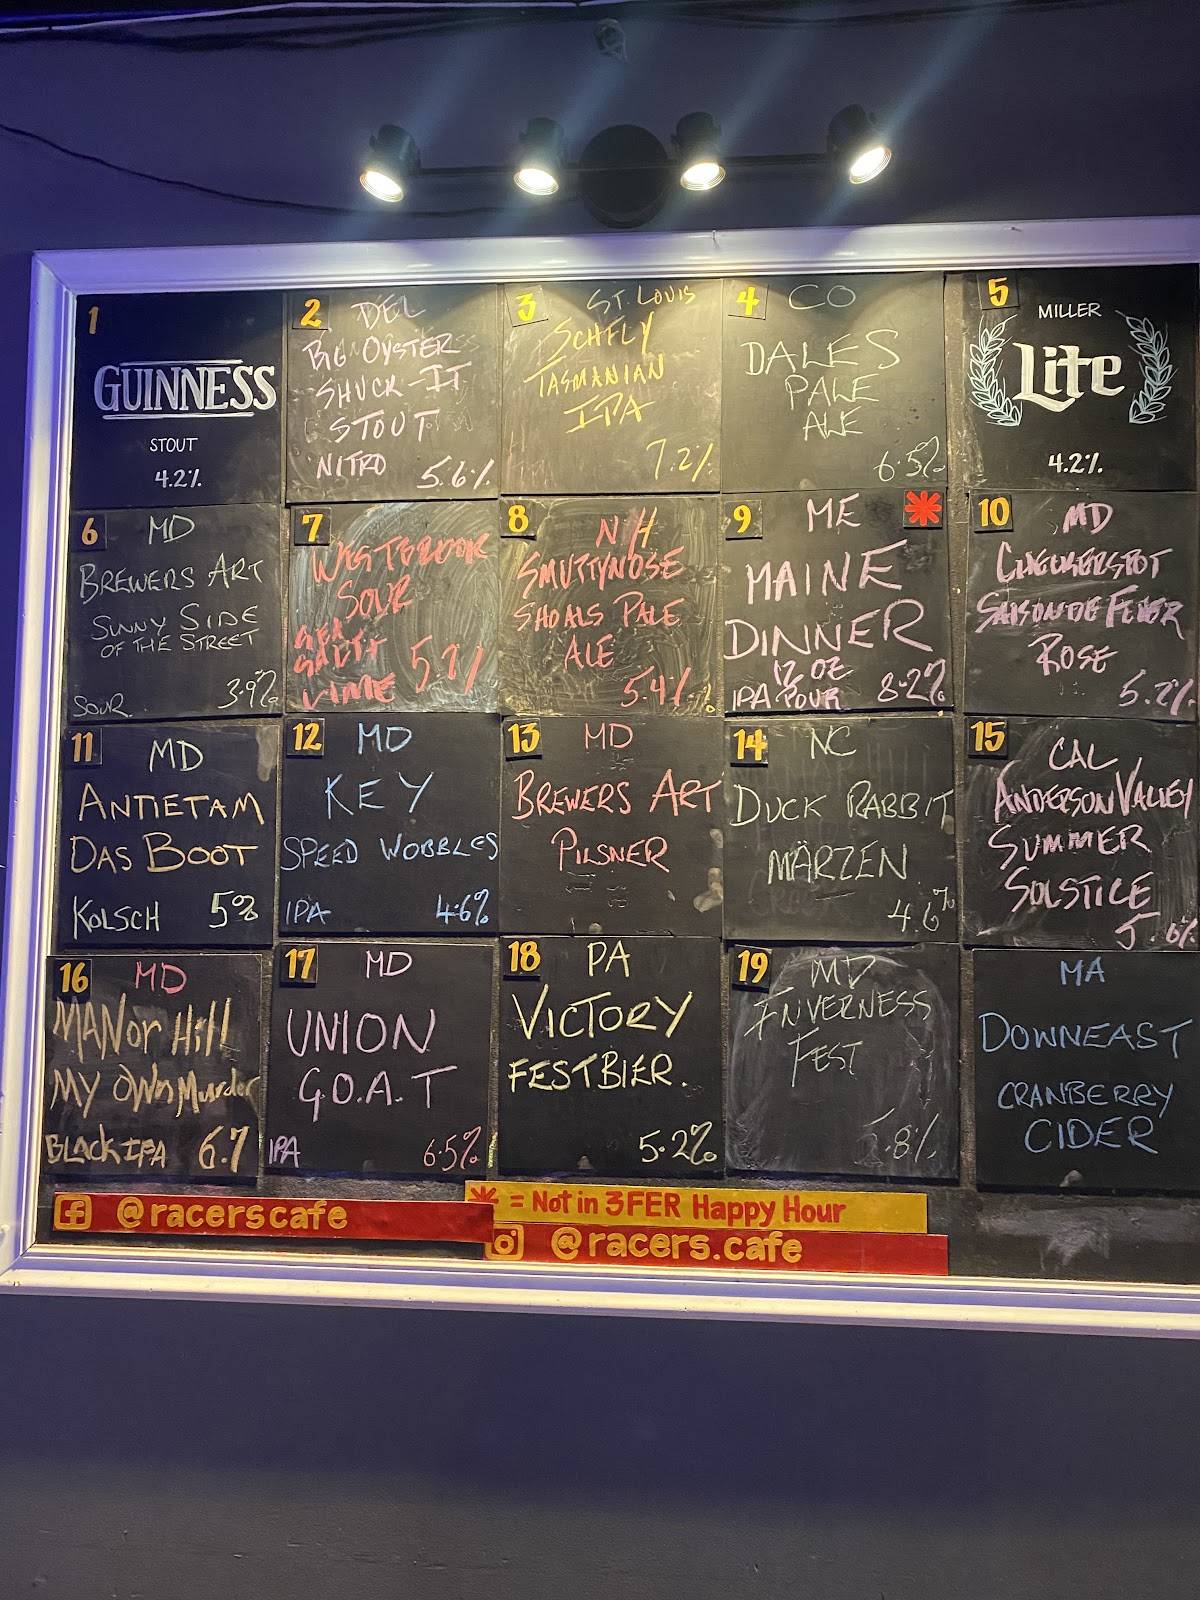 1
GUINNESS
STOUT
4.2%
2
DEL
BIG OYSTER
SHUCK-IT
STOUT
NITRO 5.6%
3
ST. LOUIS
SCHFLY
TASMANIAN
IPA
7.2%
4
CO
DALES
PALE
ALE
6.5%
5
MILLER
Lite
4.2%
6
MD
BREWERS ART
SUNNY SIDE
OF THE STREET
SOUR 3.9%
7
SOUR
SEA
SALT +
LIME
8
NH
SMUTTYNOSE
SHOALS PALE
ALE
5.4%
9
ME
MAINE
DINNER
12 OZ
IPA POUR 8.2%
10
MD
CHECKERSPOT
SAISON DE FEVER
ROSE
5.2%
11
MD
ANTIETAM
DAS BOOT
KOLSCH 5%
12
MD
KEY
SPEED WOBBLES
IPA 4.6%
13
MD
BREWERS ART
PILSNER
14
NC
DUCK RABBIT
MÄRZEN
4.6%
15
CAL
ANDERSON VALLEY
SUMMER
SOLSTICE
5.6%
16
MD
MANor Hill
MY OWn Murder
BLACK IPA 6.7
17
MD
UNION
G.O.A.T
IPA 6.5%
18
PA
VICTORY
FESTBIER.
5.2%
19
MD
INVERNESS
FEST
5.8%
MA
DOWNEAST
CRANBERRY
CIDER
@racerscafe
= Not in 3FER Happy Hour
@racers.cafe